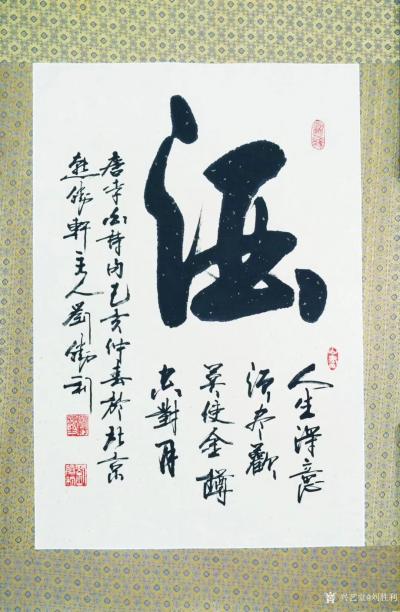 酒
人生得意
須尽歡
莫使金樽
空對月
唐李白詩句己亥仲春於北京
勝軒主人劉勝利
兴艺堂@刘胜利